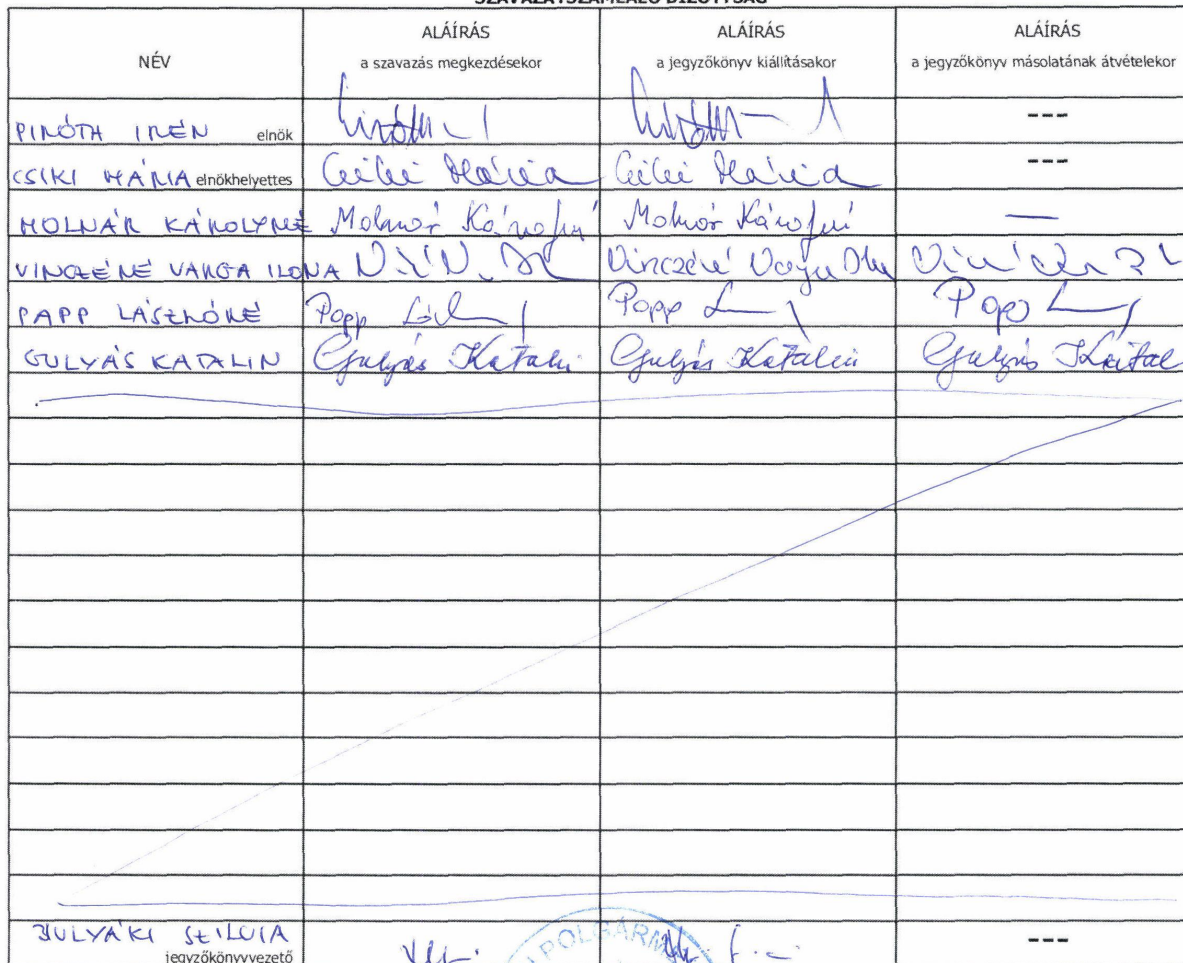 SZAVAZATSZÁMLÁLÓ BIZOTTSÁG
NÉV
ALÁÍRÁS
a szavazás megkezdésekor
ALÁÍRÁS
a jegyzőkönyv kiállításakor
ALÁÍRÁS
a jegyzőkönyv másolatának átvételekor
PIRÓTH IRÉN elnök ---
CSIKI MÁRIA elnökhelyettes Csiki Mária Csiki Mária ---
MOLNÁR KÁROLYNÉ Molnár Károlyné Molnár Károlyné —
VINCZÉNÉ VARGA ILONA Vinczéné Varga
PAPP LÁSZLÓNÉ Papp Papp Papp
GULYÁS KATALIN Gulyás Katalin Gulyás Katalin Gulyás Katal
SZILVIA
jegyzőkönyvvezető ---
POLGÁRM